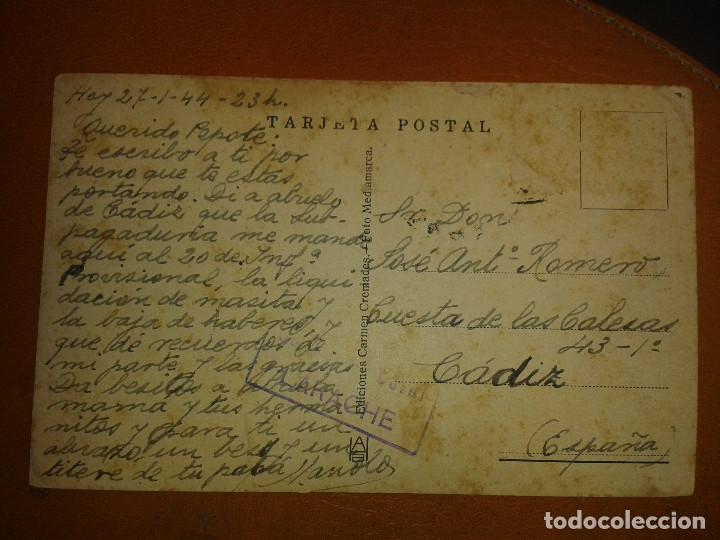 Hoy 27-1-44-23h.
TARJETA POSTAL
Querido Pepote:
Te escribo a ti por
bueno que te estas
portando. Di a abuelo
de Cádiz que la Sub-
pagaduría me mande
aquí al 20 de Infª
Provisional, la liqui
dación de masita y
la baja de haberes, y
que de recuerdos de
mi parte y las gracias
Da besitos a
mamá y tus herma
nitos y para ti un
abrazo un beso y un
titere de tu papá Manolo
Ediciones Carmen Cremades.-Foto Mediamarca.
Sr. Don
José Antº Romero
Cuesta de las Calesas
43-1º
Cádiz
(España)
LARACHE
todocoleccion
todocoleccion.net